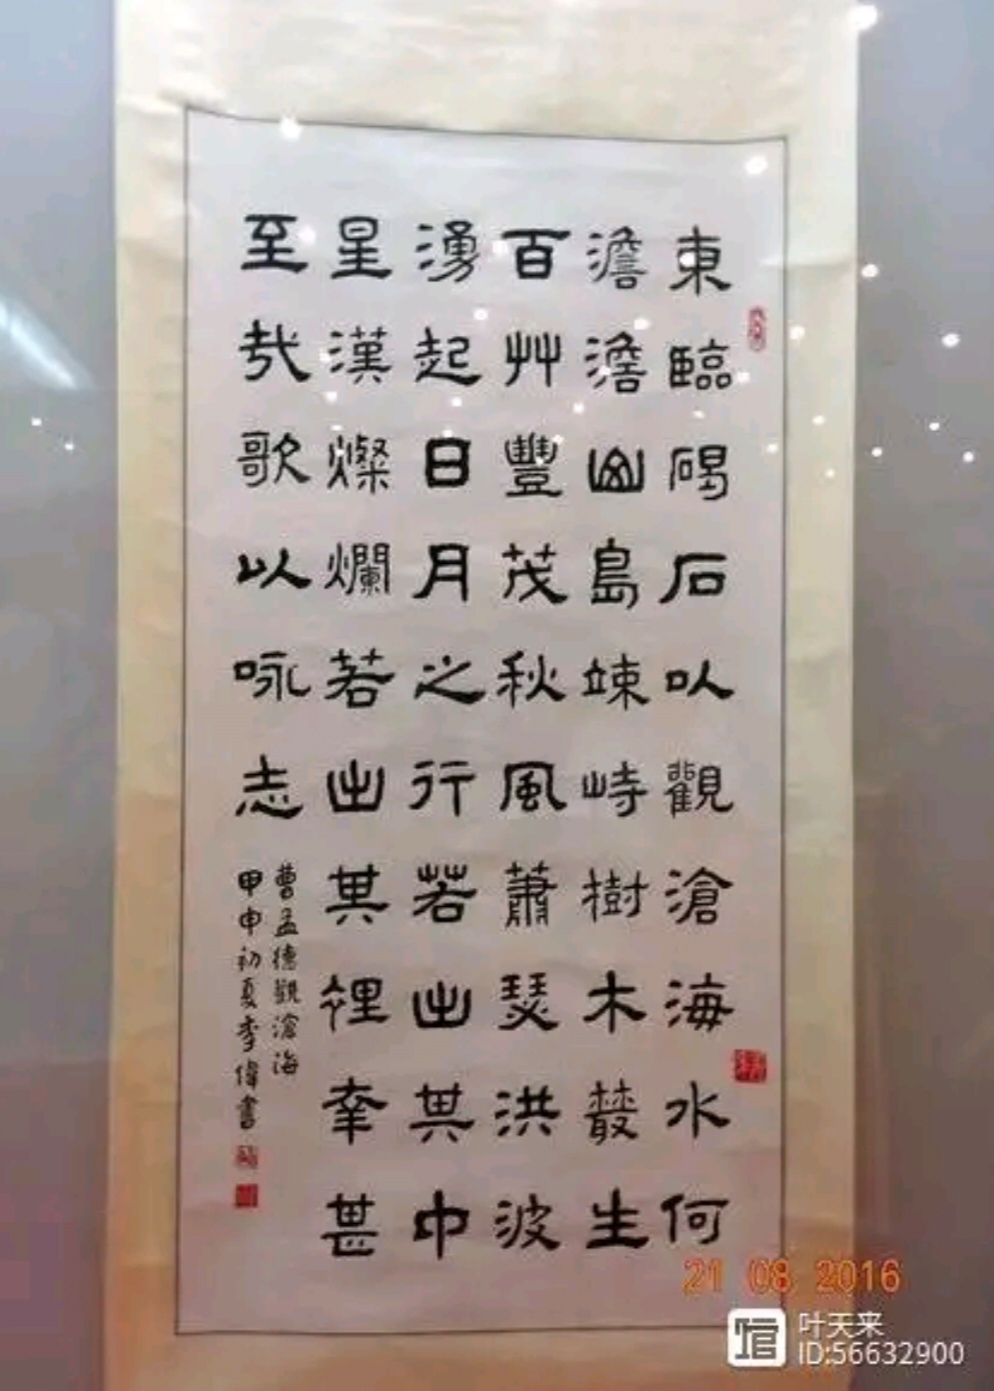 東臨碣石以觀滄海水何
澹澹山島竦峙樹木叢生
百艸豐茂秋風蕭瑟洪波
湧起日月之行若出其中
星漢燦爛若出其裡幸甚
至哉歌以咏志
曹孟德觀滄海
甲申初夏李偉書
21 08 2016
叶天来
ID:56632900